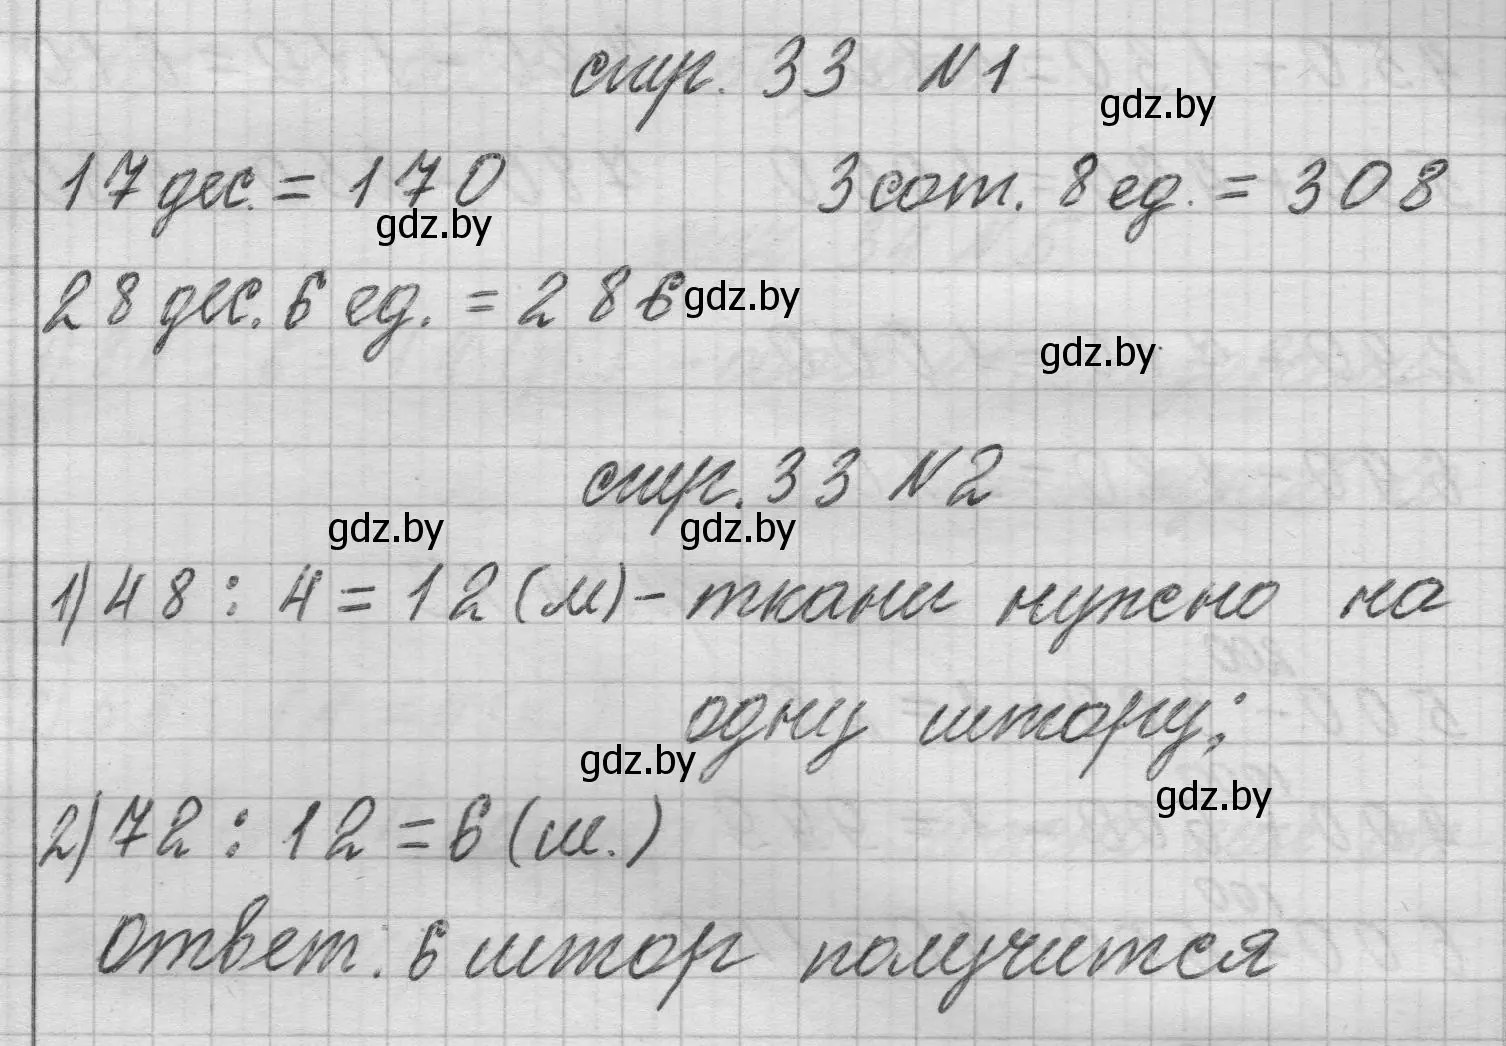 стр. 33 N1
gdz.by
17 дес. = 170 3 сот. 8 ед. = 308
gdz.by
28 дес. 6 ед. = 286
gdz.by
gdz.by
стр. 33 N2
gdz.by gdz.by
1) 48 : 4 = 12 (м) - ткани нужно на
одну штору;
gdz.by
gdz.by
2) 72 : 12 = 6 (ш.)
ответ: 6 штор получится